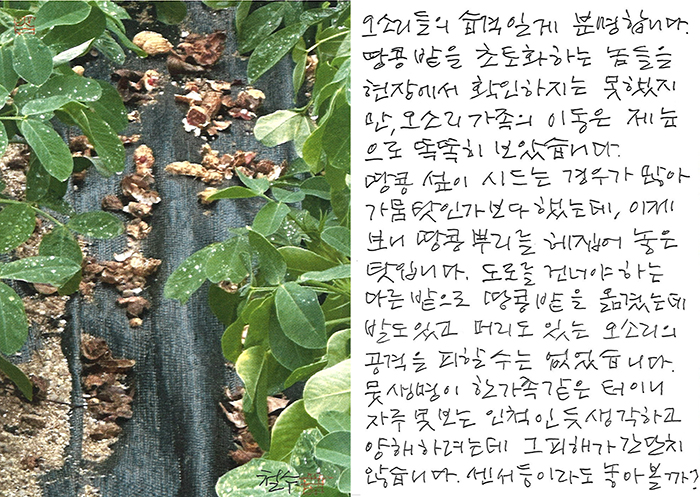 오소리들의 습격일게 분명합니다.
땅콩 밭을 초토화하는 놈들을
현장에서 확인하지는 못했지
만, 오소리 가족의 이동은 제 눈
으로 똑똑히 보았습니다.
땅콩 잎이 시드는 경우가 많아
가뭄 탓인가보다 했는데, 이제
보니 땅콩 뿌리를 헤집어 놓은
탓입니다. 도로를 건너야 하는
다른 밭으로 땅콩밭을 옮겼는데
발도 있고 머리도 있는 오소리의
공격을 피할 수는 없었습니다.
뭇 생명이 한가족 같은 터이니
자주 못보는 인척인 듯 생각하고
양해하려는데 그 피해가 간단치
않습니다. 센서등이라도 놓아볼까?
철수